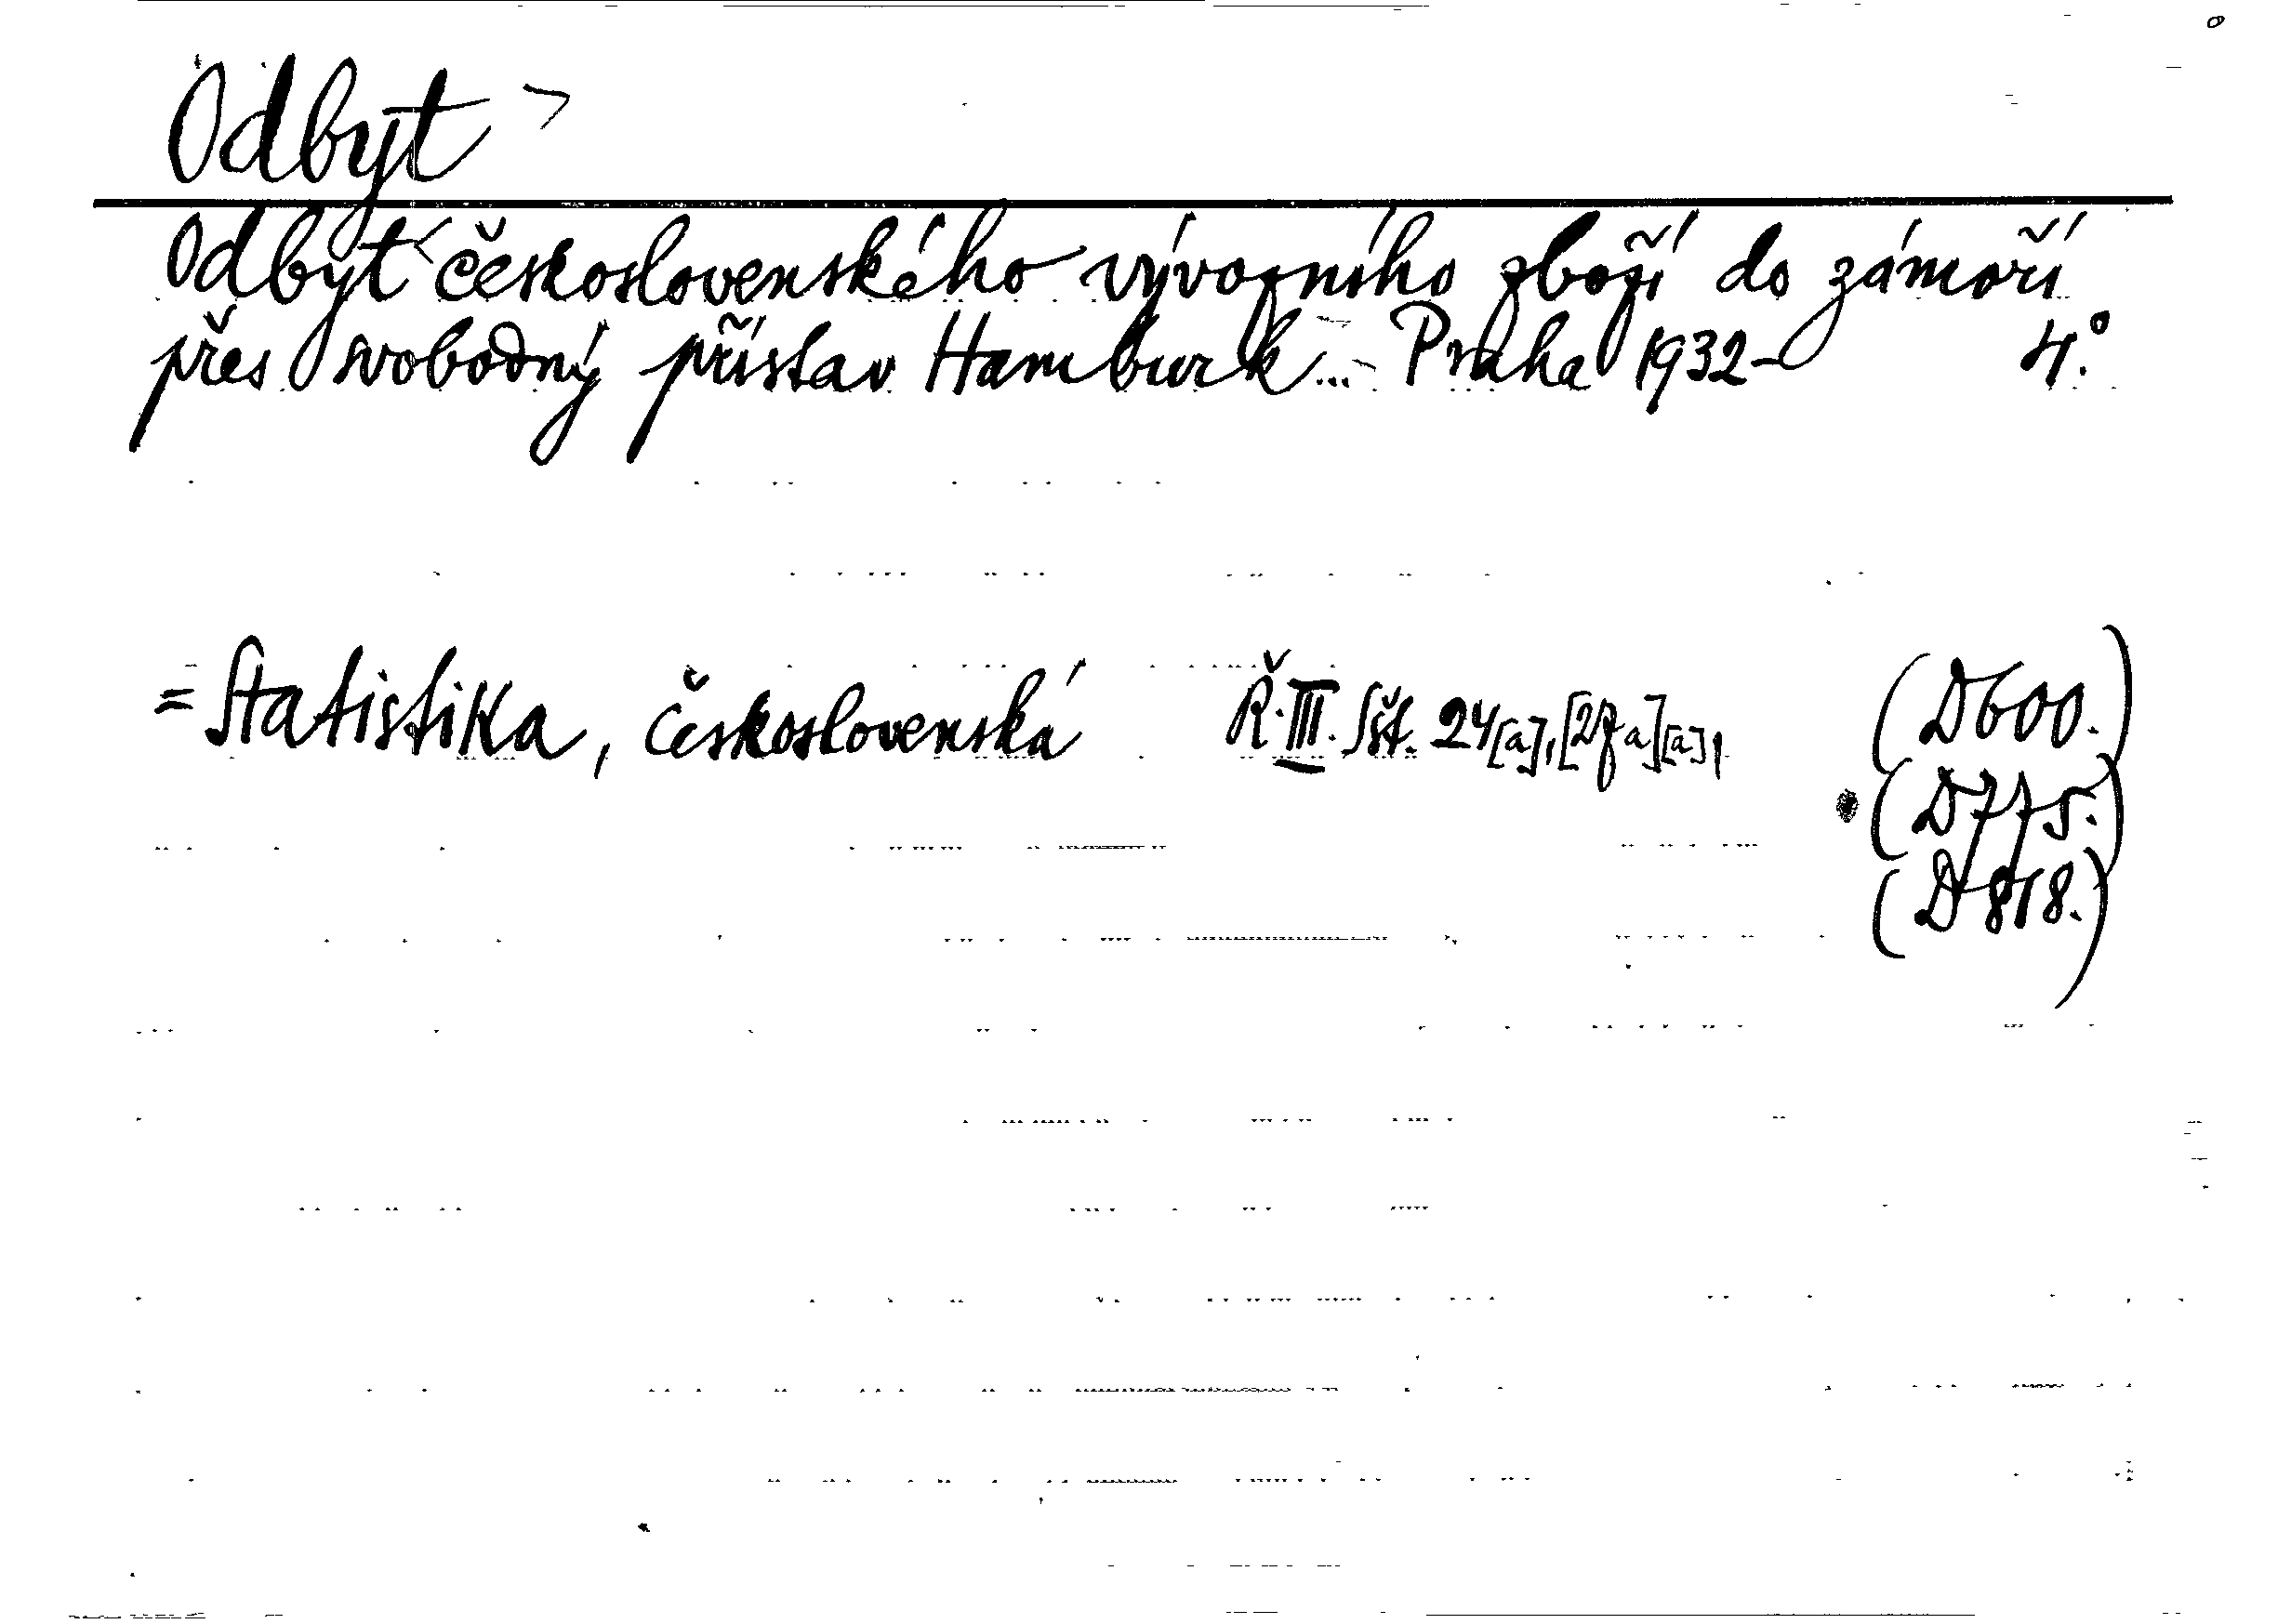 Odbyt
Odbyt československého vývozního zboží do zámoří
přes svobodný přístav Hamburk... Praha 1932- 4.°
= Statistika, Československá Ř.III. Sšt. 24[a],[27a][a], (D600.)
(D775.)
(D818.)